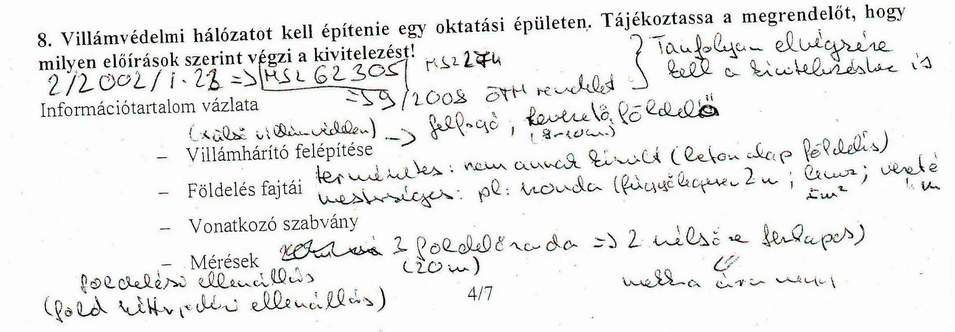 8. Villámvédelmi hálózatot kell építenie egy oktatási épületen. Tájékoztassa a megrendelőt, hogy
milyen előírások szerint végzi a kivitelezést!
Tanfolyam elvégzése
kell a kivitelezéshez is
2/2002/I.23 => MSZ 62305 MSZ 274
=> 9/2008 ÖTM rendelet
Információtartalom vázlata
(külső villámvédelem) -> felfogó, levezető, földelő
(8-10mm)
– Villámhárító felépítése
természetes: nem annak készült (beton alap földelés)
– Földelés fajtái
mesterséges: pl: szonda (függőlegesen 2m; lemez; vezeték
1m²
– Vonatkozó szabvány
– Mérések
3 földelőszonda => 2 szélső
(20m)
földelési ellenállás
(föld ellenállás)
4/7